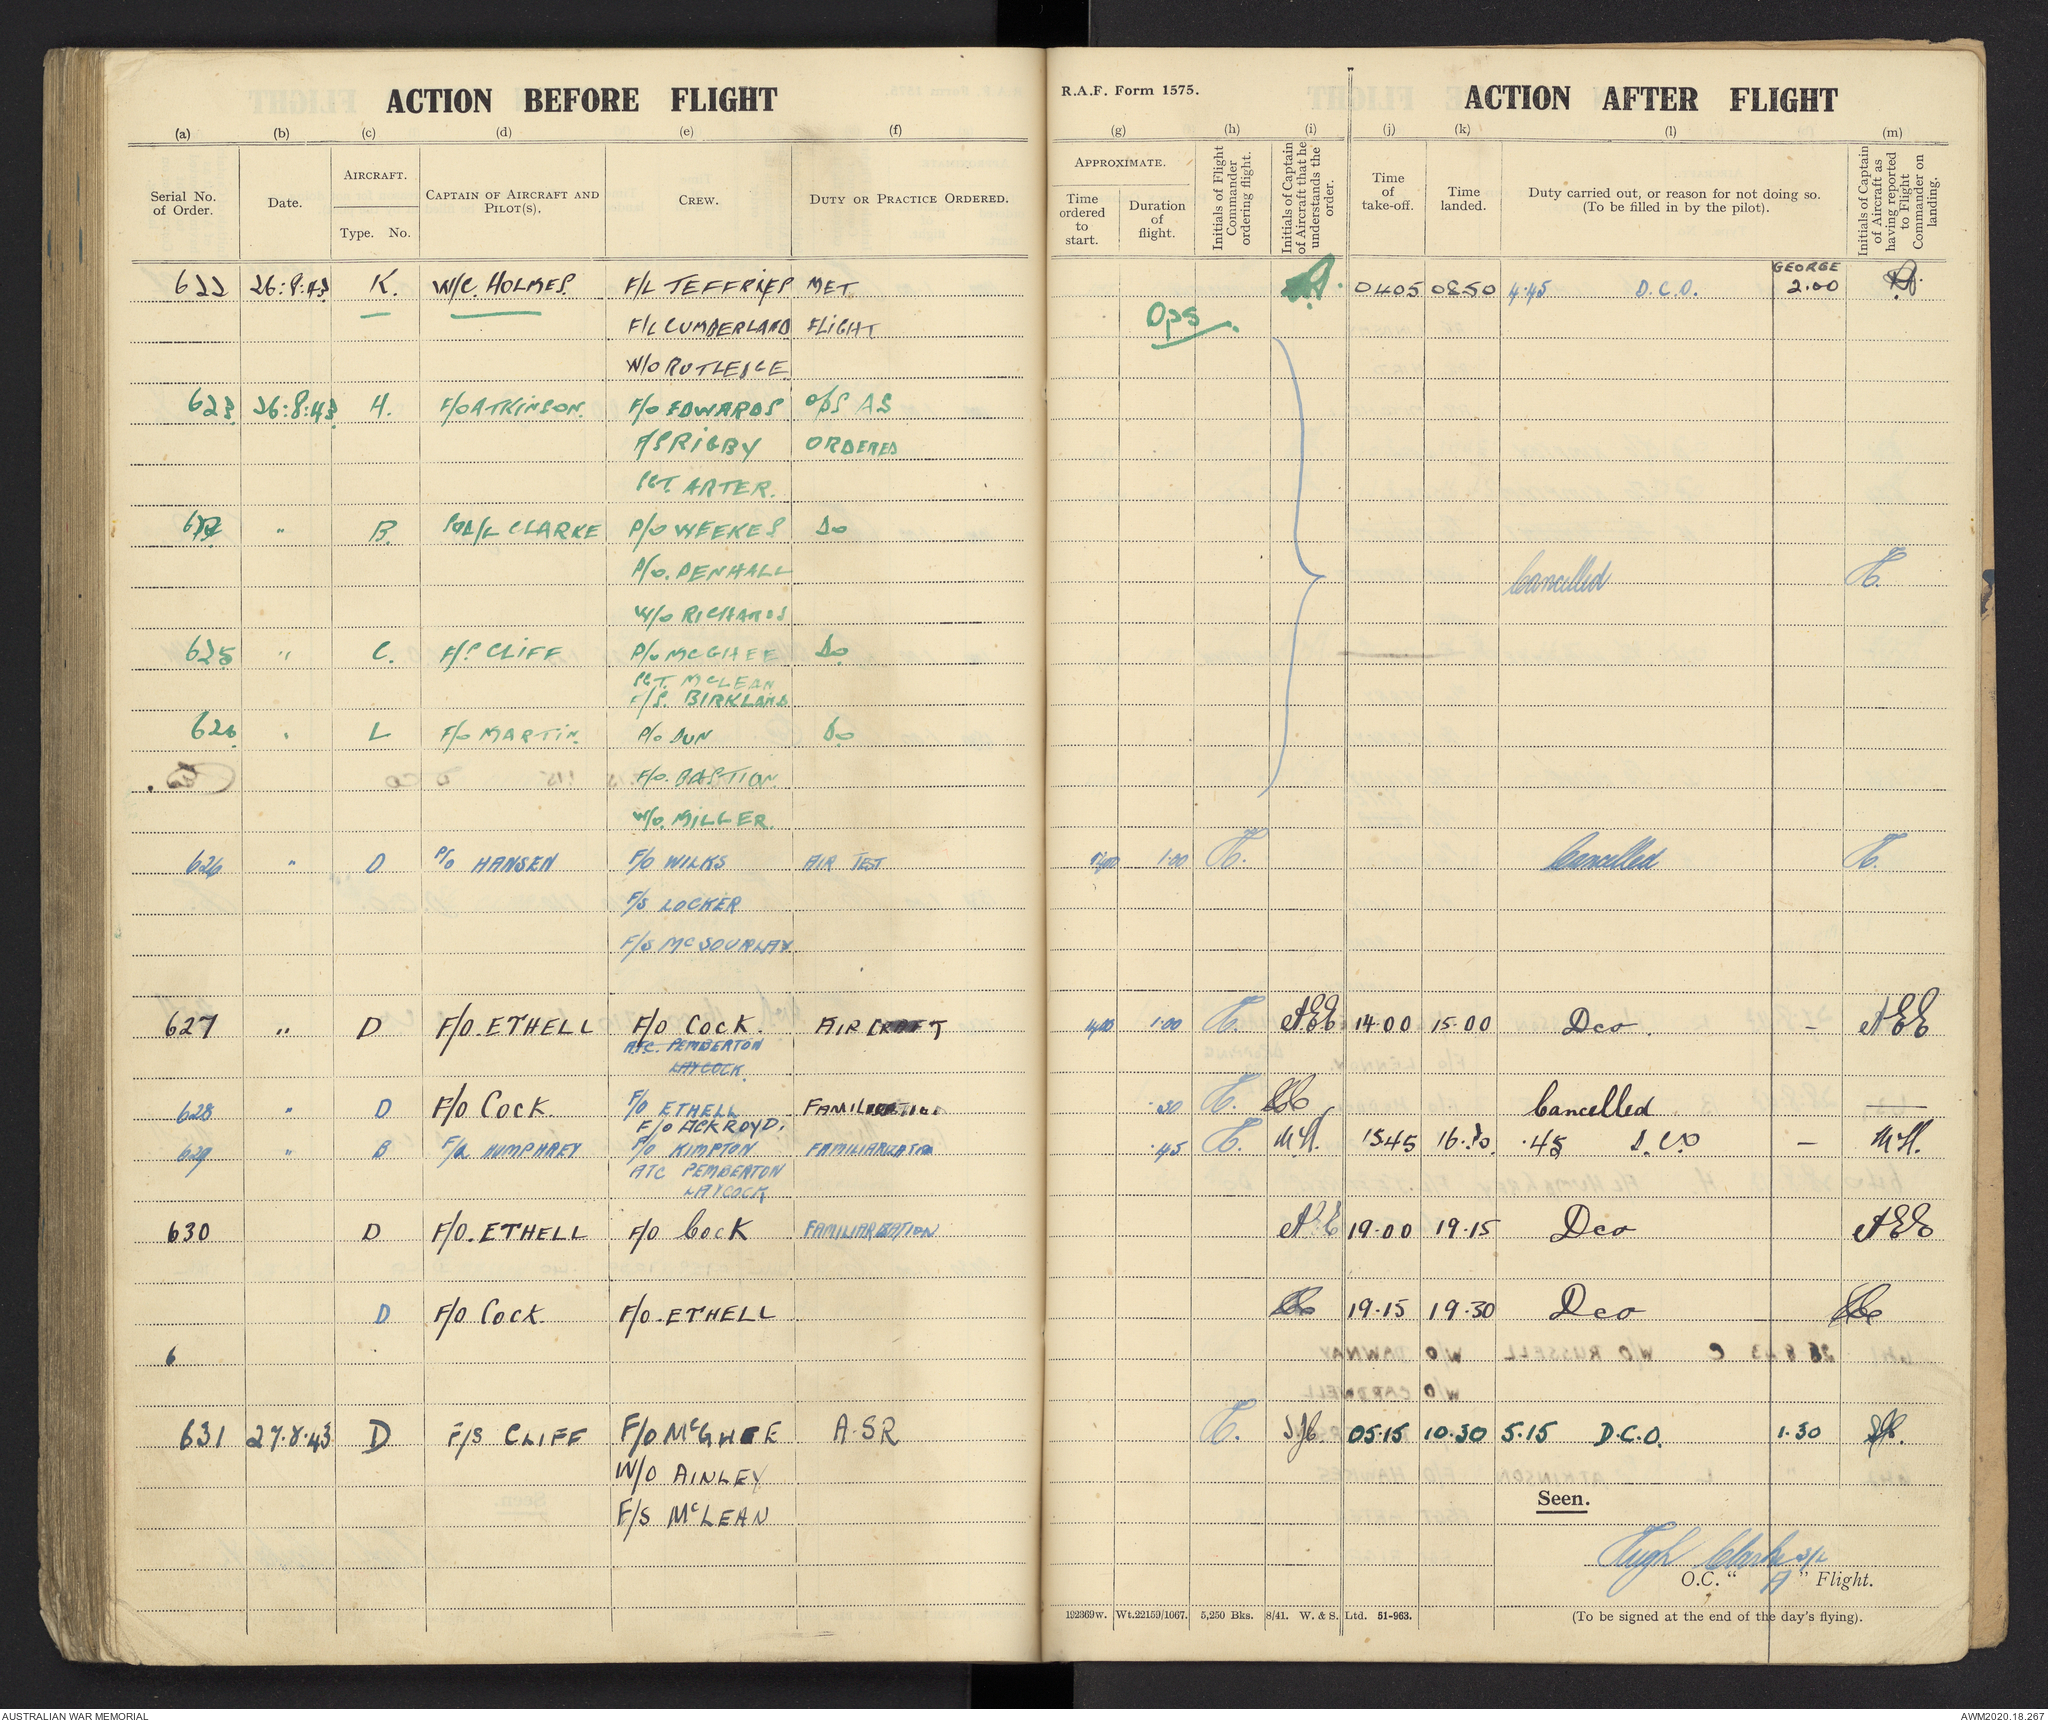 ACTION BEFORE FLIGHT
(a) (b) (c) (d) (e) (f)
Serial No. of Order. Date. AIRCRAFT. Type. No. CAPTAIN OF AIRCRAFT AND PILOT(S). CREW. DUTY OR PRACTICE ORDERED.
622 26:8:43 K. W/C. HOLMES. F/L JEFFRIES MET
F/L CUMBERLAND FLIGHT
W/O RUTLEDGE
623 26:8:43 H. F/O ATKINSON. F/O EDWARDS OPS AS
F/S RIGBY ORDERED
SGT. ARTER.
" B. SQD/L CLARKE P/O WEEKES Do
P/O. PENHALL
W/O RICHARDS
625 " C. F/S CLIFF P/O McGHEE Do
SGT. McLEAN
F/S. BIRKLAND
626 L F/O MARTIN. P/O DUN Do
F/O. BASTION.
W/O. MILLER.
626 " D P/O HANSEN F/O WILKS AIR TEST
F/S LOCKER
F/S McSOURLAY
627 " D F/O. ETHELL F/O COCK. AIRCRAFT
ATC. PEMBERTON
LAYCOCK.
628 " D F/O COCK. F/O ETHELL
F/O ACKROYD.
629 " B F/L HUMPHREY P/O KIMPTON FAMILIARIZATION
ATC PEMBERTON
LAYCOCK
630 D F/O. ETHELL F/O COCK FAMILIARIZATION
D F/O COCK. F/O. ETHELL
6
631 27.8.43 D F/S CLIFF F/O McGHEE A.SR
W/O AINLEY
F/S McLEAN
R.A.F. Form 1575. ACTION AFTER FLIGHT
(g) (h) (i) (j) (k) (l) (m)
APPROXIMATE. Time ordered to start. Duration of flight. Initials of Flight Commander ordering flight. Initials of Captain of Aircraft that he understands the order. Time of take-off. Time landed. Duty carried out, or reason for not doing so. (To be filled in by the pilot). Initials of Captain of Aircraft as having reported to Flight Commander on landing.
GEORGE
0405 0850 4.45 D.C.O. 2.00
Ops
Cancelled H.
1.00 H. Cancelled H.
1400 1.00 H. AEE 14.00 15.00 Dco. – AEE
.30 H. Cancelled
.45 H. M.H. 1545 .45 D.C.O – M.H.
A.E 19.00 19.15 Dco AEE
19.15 19.30 Dco
H. 05.15 10.30 5.15 D.C.O. 1.30
Seen.
Hugh Clarke S/L
O.C. "A" Flight.
192369w. Wt.22159/1067. 5,250 Bks. 8/41. W. & S. Ltd. 51-963. (To be signed at the end of the day's flying).
AUSTRALIAN WAR MEMORIAL AWM2020.18.267